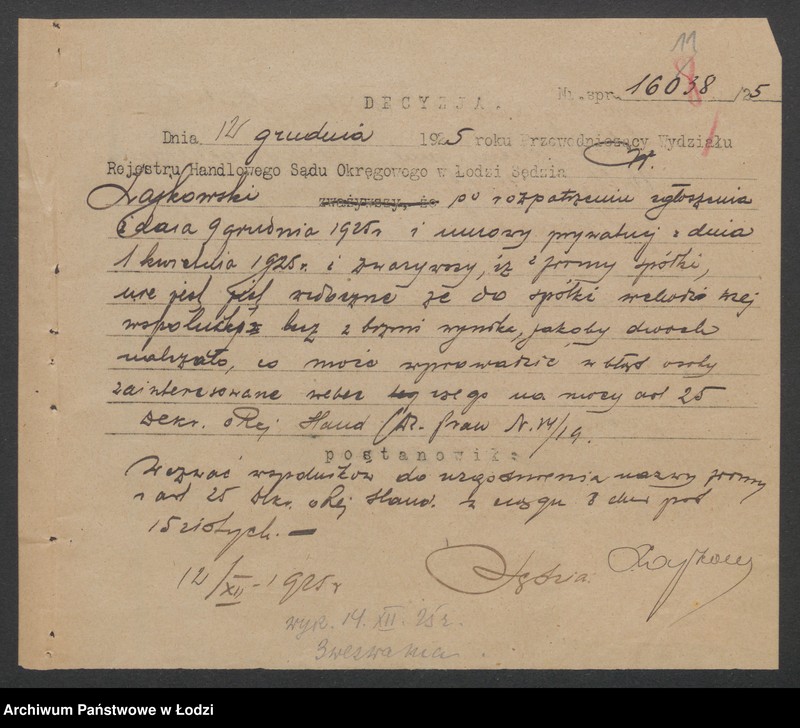 11
8
DECYZJA.
Nr. spr. 16038 /25
Dnia 12 grudnia 1925 roku Przewodniczący Wydziału
Rejestru Handlowego Sądu Okręgowego w Łodzi Sędzia W.
Zajkowski zważywszy, że po rozpatrzeniu zgłoszenia
z dnia 9 grudnia 1925 r i umowy prywatnej z dnia
1 kwietnia 1925 r. i zważywszy, iż z firmy spółki,
nie jest widoczne że do spółki wchodzi
wspólników lecz z brzmi wynika, jakoby dwóch
należało, co może wprowadzić w błąd osoby
zainteresowane wobec czego na mocy art 25
Dekr. o Rej Hand (Dz. Praw N. 14/19.
postanowił:
Wezwać wspólników do uzgodnienia nazwy firmy
z art 25 Dekr. o Rej Hand. w ciągu 8 dni pod
15 złotych. —
Sędzia. Zajkowski
12/XII - 1925 r
wyk. 14. XII. 25 r.
3 wezwania
Archiwum Państwowe w Łodzi